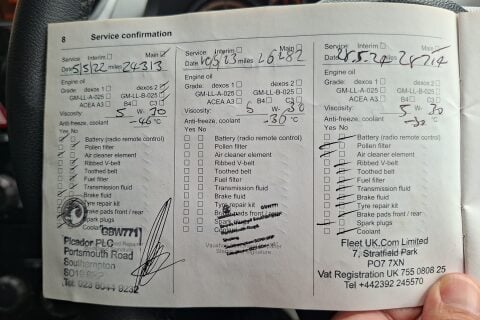 8 Service confirmation
Service Interim Main
Date 5/5/22 miles 24313
Engine oil
Grade: dexos 1 dexos 2
GM-LL-A-025 GM-LL-B-025
ACEA A3 B4 C3
Viscosity: 5 W- 30
Anti-freeze, coolant -46 °C
Yes No
Battery (radio remote control)
Pollen filter
Air cleaner element
Ribbed V-belt
Toothed belt
Fuel filter
Transmission fluid
Brake fluid
Tyre repair kit
Brake pads front / rear
Spark plugs
Coolant
GBW771
Picador PLC
Portsmouth Road
Southampton
Tel: 023 8044 9232
Service Interim Main
Date miles 26282
Engine oil
Grade: dexos 1 dexos 2
GM-LL-A-025 GM-LL-B-025
ACEA A3 B4 C3
Viscosity: 5 W- 30
Anti-freeze, coolant -30 °C
Yes No
Battery (radio remote control)
Pollen filter
Air cleaner element
Ribbed V-belt
Toothed belt
Fuel filter
Transmission fluid
Brake fluid
Tyre repair kit
Brake pads front / rear
Service Interim Main
Date 28.5.24 miles 28714
Engine oil
Grade: dexos 1 dexos 2
GM-LL-A-025 GM-LL-B-025
ACEA A3 B4 C3
Viscosity: 5 W- 30
Anti-freeze, coolant °C
Yes No
Battery (radio remote control)
Pollen filter
Air cleaner element
Ribbed V-belt
Toothed belt
Fuel filter
Transmission fluid
Brake fluid
Tyre repair kit
Brake pads front / rear
Spark plugs
Coolant
Fleet UK.Com Limited
7, Stratfield Park
PO7 7XN
Vat Registration UK 755 0808 25
Tel +442392 245570